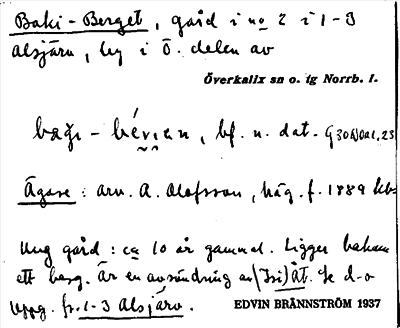 Baki-Berget, gård i no 2 i 1-3
Alsjärv, by i Ö. delen av
Överkalix sn o. tg Norrb. l.
bf. n. dat.
Ägare: arr. A. Olofsson, häg. f. 1889
Ung gård: ca 10 år gammal. Ligger bakom
ett berg. Är en avsöndring av (Isi)åt. Se d-o
uppg. fr. 1-3 Alsjärv. EDVIN BRÄNNSTRÖM 1937